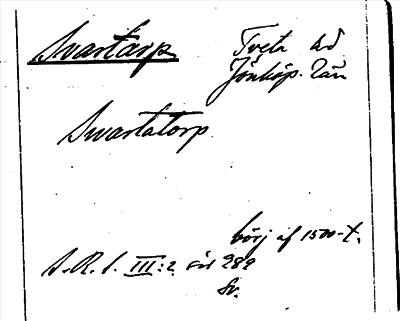 Svartarp Tveta hd
Jönköp. län
Swartatorp
börj af 1500-t.
S.R.S. III:2 sid 282
Sv.